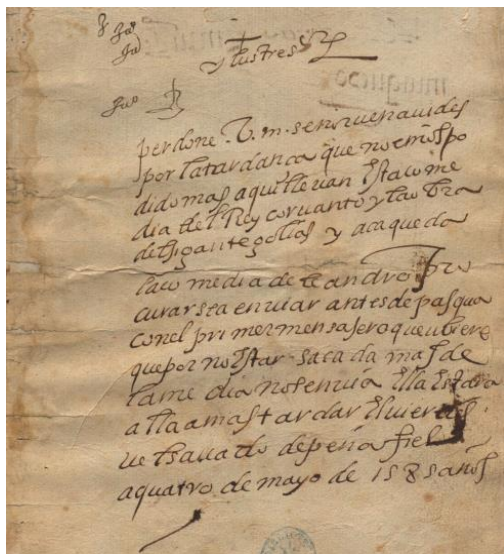 yllustre sr
perdone v. m. señor venavides
por la tardanca que no emos po
dido mas aqui llevan esta come
dia del Rey corvanto y la otra
del gigante golias y aca queda
la comedia de leandro pro
curarsea enviar antes de pasqua
con el primer mensagero que ubiere
que por no estar sacada mas de
la me dia no se envia ella estara
alla a mas tardar el viernes
de peña fiel
a quatro de mayo de 1585 años